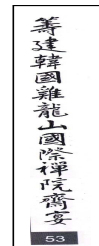 籌建韓國雞龍山國際禪院齋宴
53